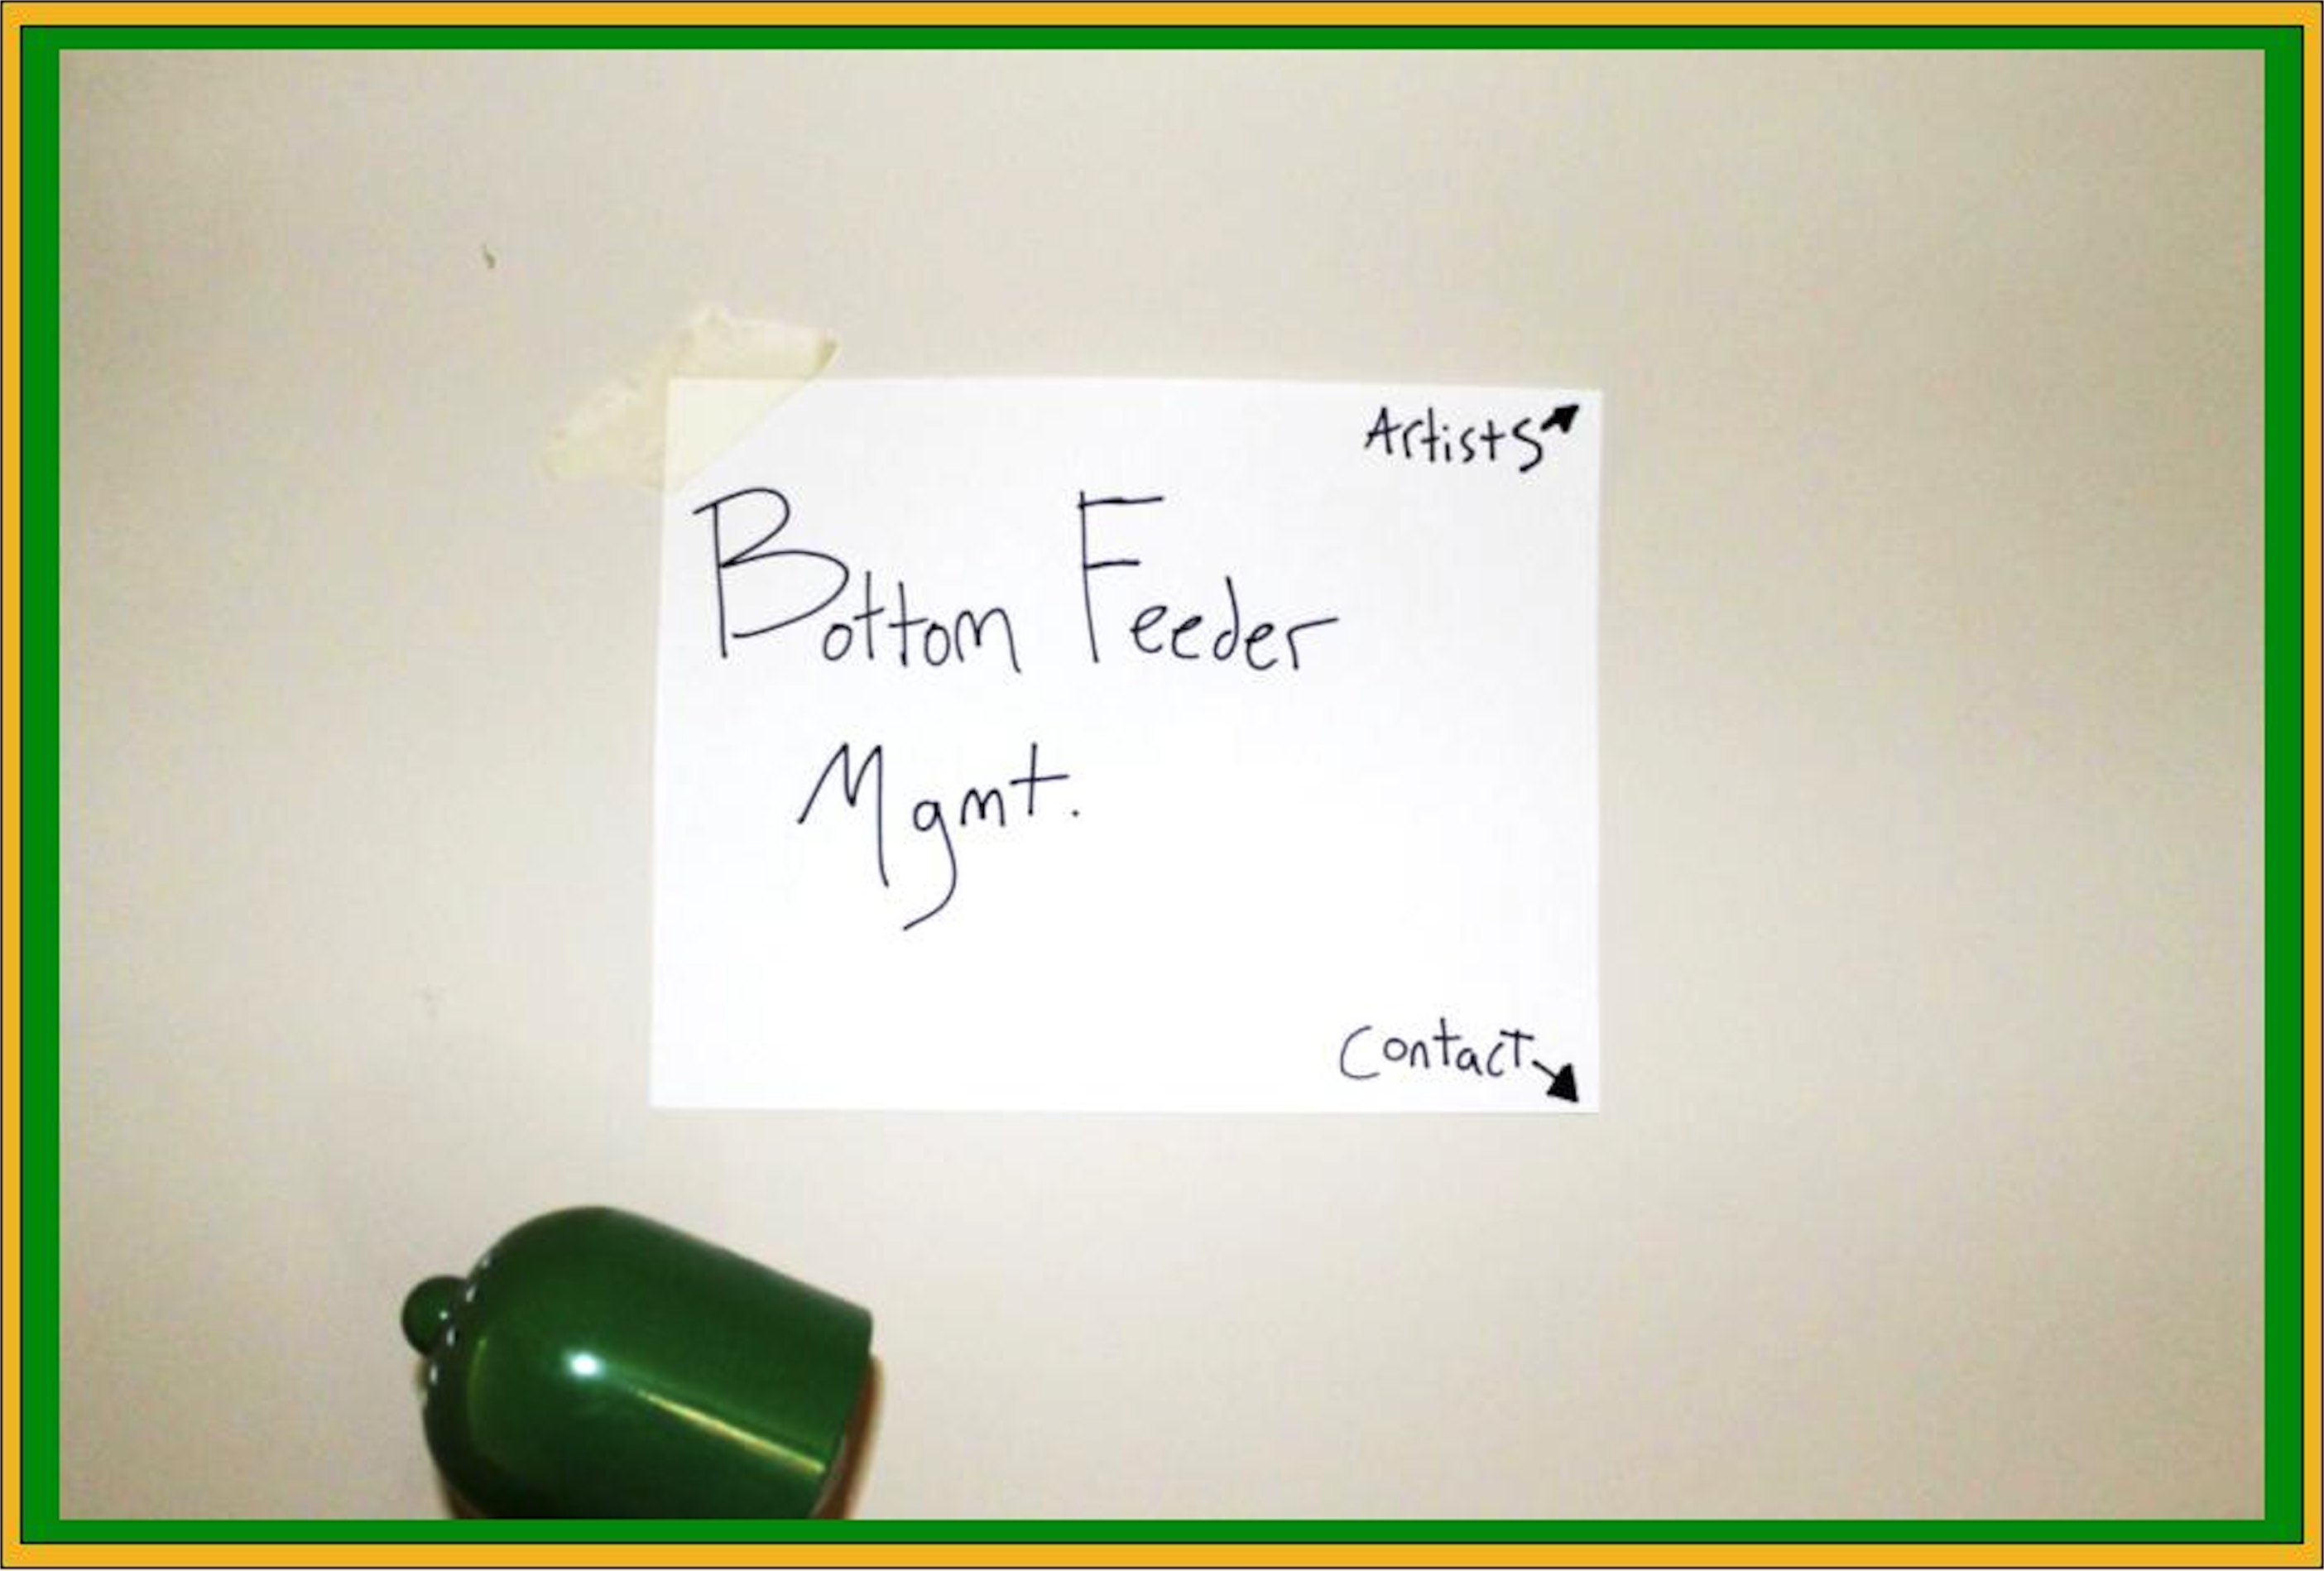 Artists
Bottom Feeder
Mgmt.
Contact